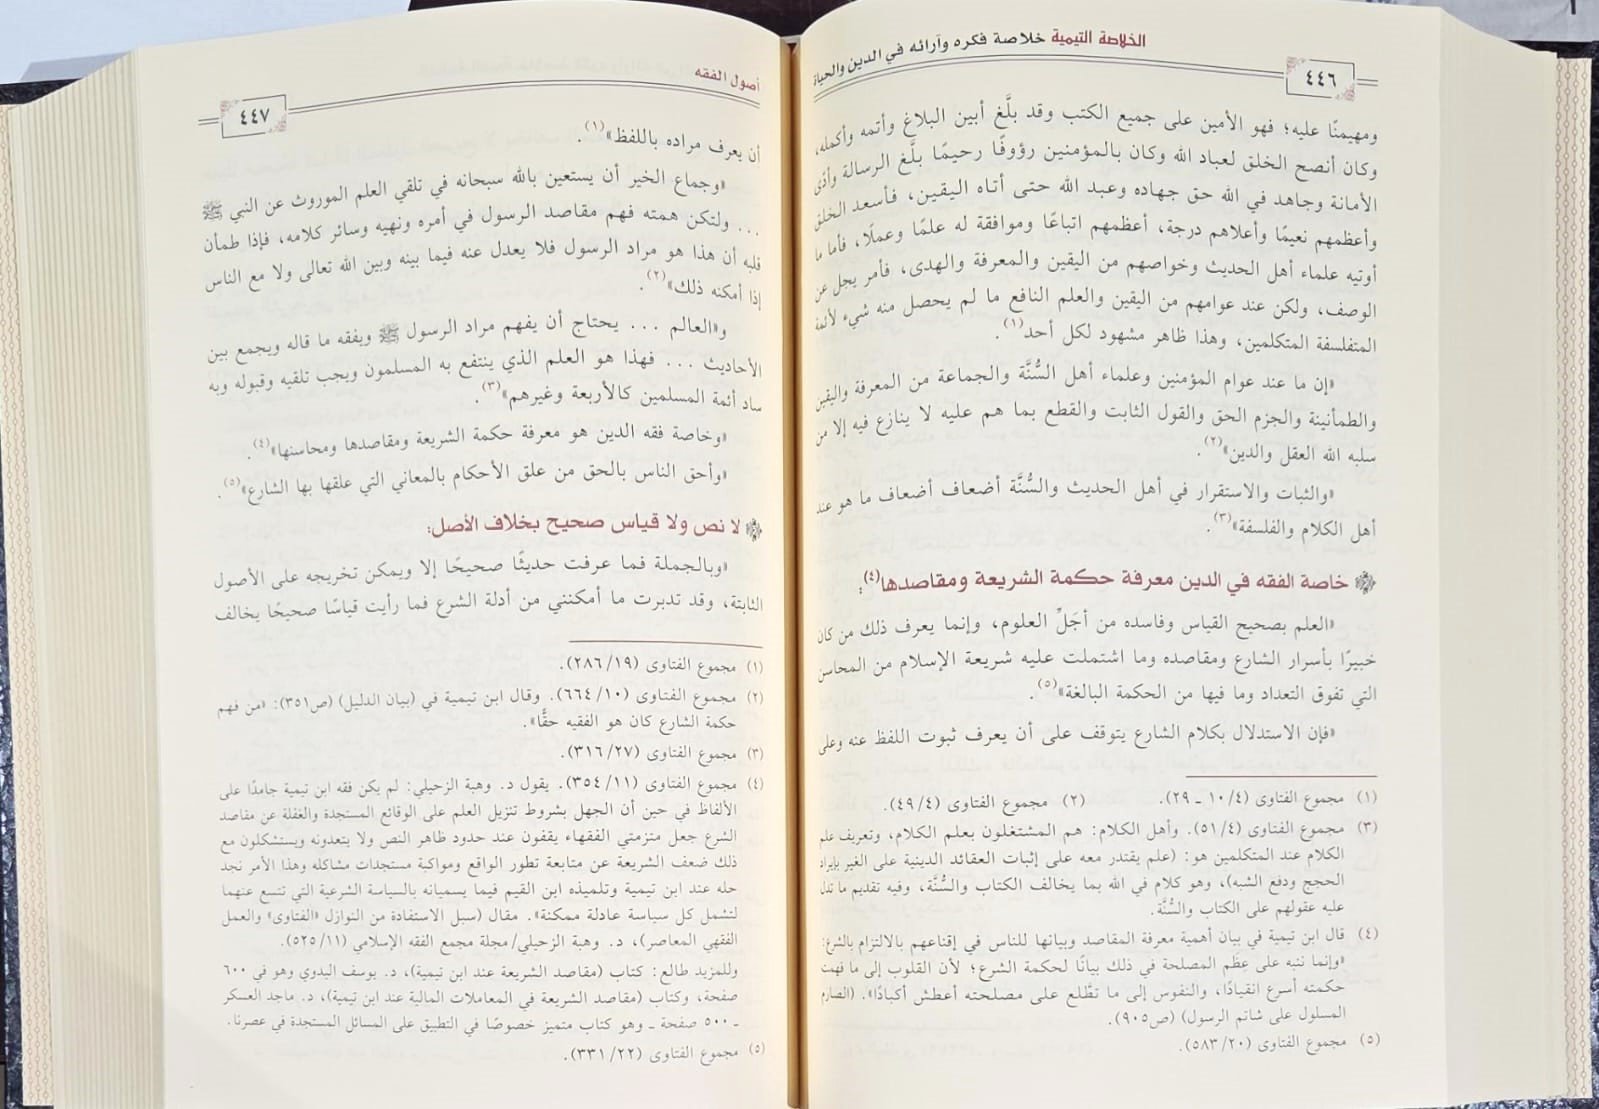 الخلاصة التيمية خلاصة فكره وآرائه في الدين والحياة
٤٤٦
ومهيمنًا عليه؛ فهو الأمين على جميع الكتب وقد بلَّغ أبين البلاغ وأتمه وأكمله،
وكان أنصح الخلق لعباد الله وكان بالمؤمنين رؤوفًا رحيمًا بلَّغ الرسالة وأدّى
الأمانة وجاهد في الله حق جهاده وعبد الله حتى أتاه اليقين، فأسعد الخلق
وأعظمهم نعيمًا وأعلاهم درجة، أعظمهم اتباعًا وموافقة له علمًا وعملًا، فأما ما
أوتيه علماء أهل الحديث وخواصهم من اليقين والمعرفة والهدى، فأمر يجل عن
الوصف، ولكن عند عوامهم من اليقين والعلم النافع ما لم يحصل منه شيء لأئمة
المتفلسفة المتكلمين، وهذا ظاهر مشهود لكل أحد(١).
«إن ما عند عوام المؤمنين وعلماء أهل السُّنَّة والجماعة من المعرفة واليقين
والطمأنينة والجزم الحق والقول الثابت والقطع بما هم عليه لا ينازع فيه إلا من
سلبه الله العقل والدين»(٢).
«والثبات والاستقرار في أهل الحديث والسُّنَّة أضعاف أضعاف ما هو عند
أهل الكلام والفلسفة»(٣).
خاصة الفقه في الدين معرفة حكمة الشريعة ومقاصدها(٤):
«العلم بصحيح القياس وفاسده من أجَلِّ العلوم، وإنما يعرف ذلك من كان
خبيرًا بأسرار الشارع ومقاصده وما اشتملت عليه شريعة الإسلام من المحاسن
التي تفوق التعداد وما فيها من الحكمة البالغة»(٥).
«فإن الاستدلال بكلام الشارع يتوقف على أن يعرف ثبوت اللفظ عنه وعلى
(١) مجموع الفتاوى (٤/١٠ ـ ٢٩). (٢) مجموع الفتاوى (٤/٤٩).
(٣) مجموع الفتاوى (٤/٥١). وأهل الكلام: هم المشتغلون بعلم الكلام، وتعريف علم
الكلام عند المتكلمين هو: (علم يقتدر معه على إثبات العقائد الدينية على الغير بإيراد
الحجج ودفع الشبه)، وهو كلام في الله بما يخالف الكتاب والسُّنَّة، وفيه تقديم ما تدل
عليه عقولهم على الكتاب والسُّنَّة.
(٤) قال ابن تيمية في بيان أهمية معرفة المقاصد وبيانها للناس في إقناعهم بالالتزام بالشرع:
«وإنما ننبه على عِظَم المصلحة في ذلك بيانًا لحكمة الشرع؛ لأن القلوب إلى ما فهمت
حكمته أسرع انقيادًا، والنفوس إلى ما تطَّلع على مصلحته أعطش أكبادًا». (الصارم
المسلول على شاتم الرسول) (ص٩٠٥).
(٥) مجموع الفتاوى (٢٠/٥٨٣).
أصول الفقه
٤٤٧
أن يعرف مراده باللفظ»(١).
«وجماع الخير أن يستعين بالله سبحانه في تلقي العلم الموروث عن النبي ﷺ
... ولتكن همته فهم مقاصد الرسول في أمره ونهيه وسائر كلامه، فإذا طمأن
قلبه أن هذا هو مراد الرسول فلا يعدل عنه فيما بينه وبين الله تعالى ولا مع الناس
إذا أمكنه ذلك»(٢).
و«العالم ... يحتاج أن يفهم مراد الرسول ﷺ ويفقه ما قاله ويجمع بين
الأحاديث ... فهذا هو العلم الذي ينتفع به المسلمون ويجب تلقيه وقبوله وبه
ساد أئمة المسلمين كالأربعة وغيرهم»(٣).
«وخاصة فقه الدين هو معرفة حكمة الشريعة ومقاصدها ومحاسنها»(٤).
«وأحق الناس بالحق من علق الأحكام بالمعاني التي علقها بها الشارع»(٥).
لا نص ولا قياس صحيح بخلاف الأصل:
«وبالجملة فما عرفت حديثًا صحيحًا إلا ويمكن تخريجه على الأصول
الثابتة، وقد تدبرت ما أمكنني من أدلة الشرع فما رأيت قياسًا صحيحًا يخالف
(١) مجموع الفتاوى (١٩/٢٨٦).
(٢) مجموع الفتاوى (١٠/٦٦٤). وقال ابن تيمية في (بيان الدليل) (ص٣٥١): «من فهم
حكمة الشارع كان هو الفقيه حقًّا».
(٣) مجموع الفتاوى (٢٧/٣١٦).
(٤) مجموع الفتاوى (١١/٣٥٤). يقول د. وهبة الزحيلي: لم يكن فقه ابن تيمية جامدًا على
الألفاظ في حين أن الجهل بشروط تنزيل العلم على الوقائع المستجدة والغفلة عن مقاصد
الشرع جعل متزمتي الفقهاء يقفون عند حدود ظاهر النص ولا يتعدونه ويستشكلون مع
ذلك ضعف الشريعة عن متابعة تطور الواقع ومواكبة مستجدات مشاكله وهذا الأمر نجد
حله عند ابن تيمية وتلميذه ابن القيم فيما يسميانه بالسياسة الشرعية التي تتسع عنهما
لتشمل كل سياسة عادلة ممكنة». مقال (سبل الاستفادة من النوازل «الفتاوى» والعمل
الفقهي المعاصر)، د. وهبة الزحيلي/مجلة مجمع الفقه الإسلامي (١١/٥٢٥).
وللمزيد طالع: كتاب (مقاصد الشريعة عند ابن تيمية)، د. يوسف البدوي وهو في ٦٠٠
صفحة، وكتاب (مقاصد الشريعة في المعاملات المالية عند ابن تيمية)، د. ماجد العسكر
ـ ٥٠٠ صفحة ـ وهو كتاب متميز خصوصًا في التطبيق على المسائل المستجدة في عصرنا.
(٥) مجموع الفتاوى (٢٢/٣٣١).